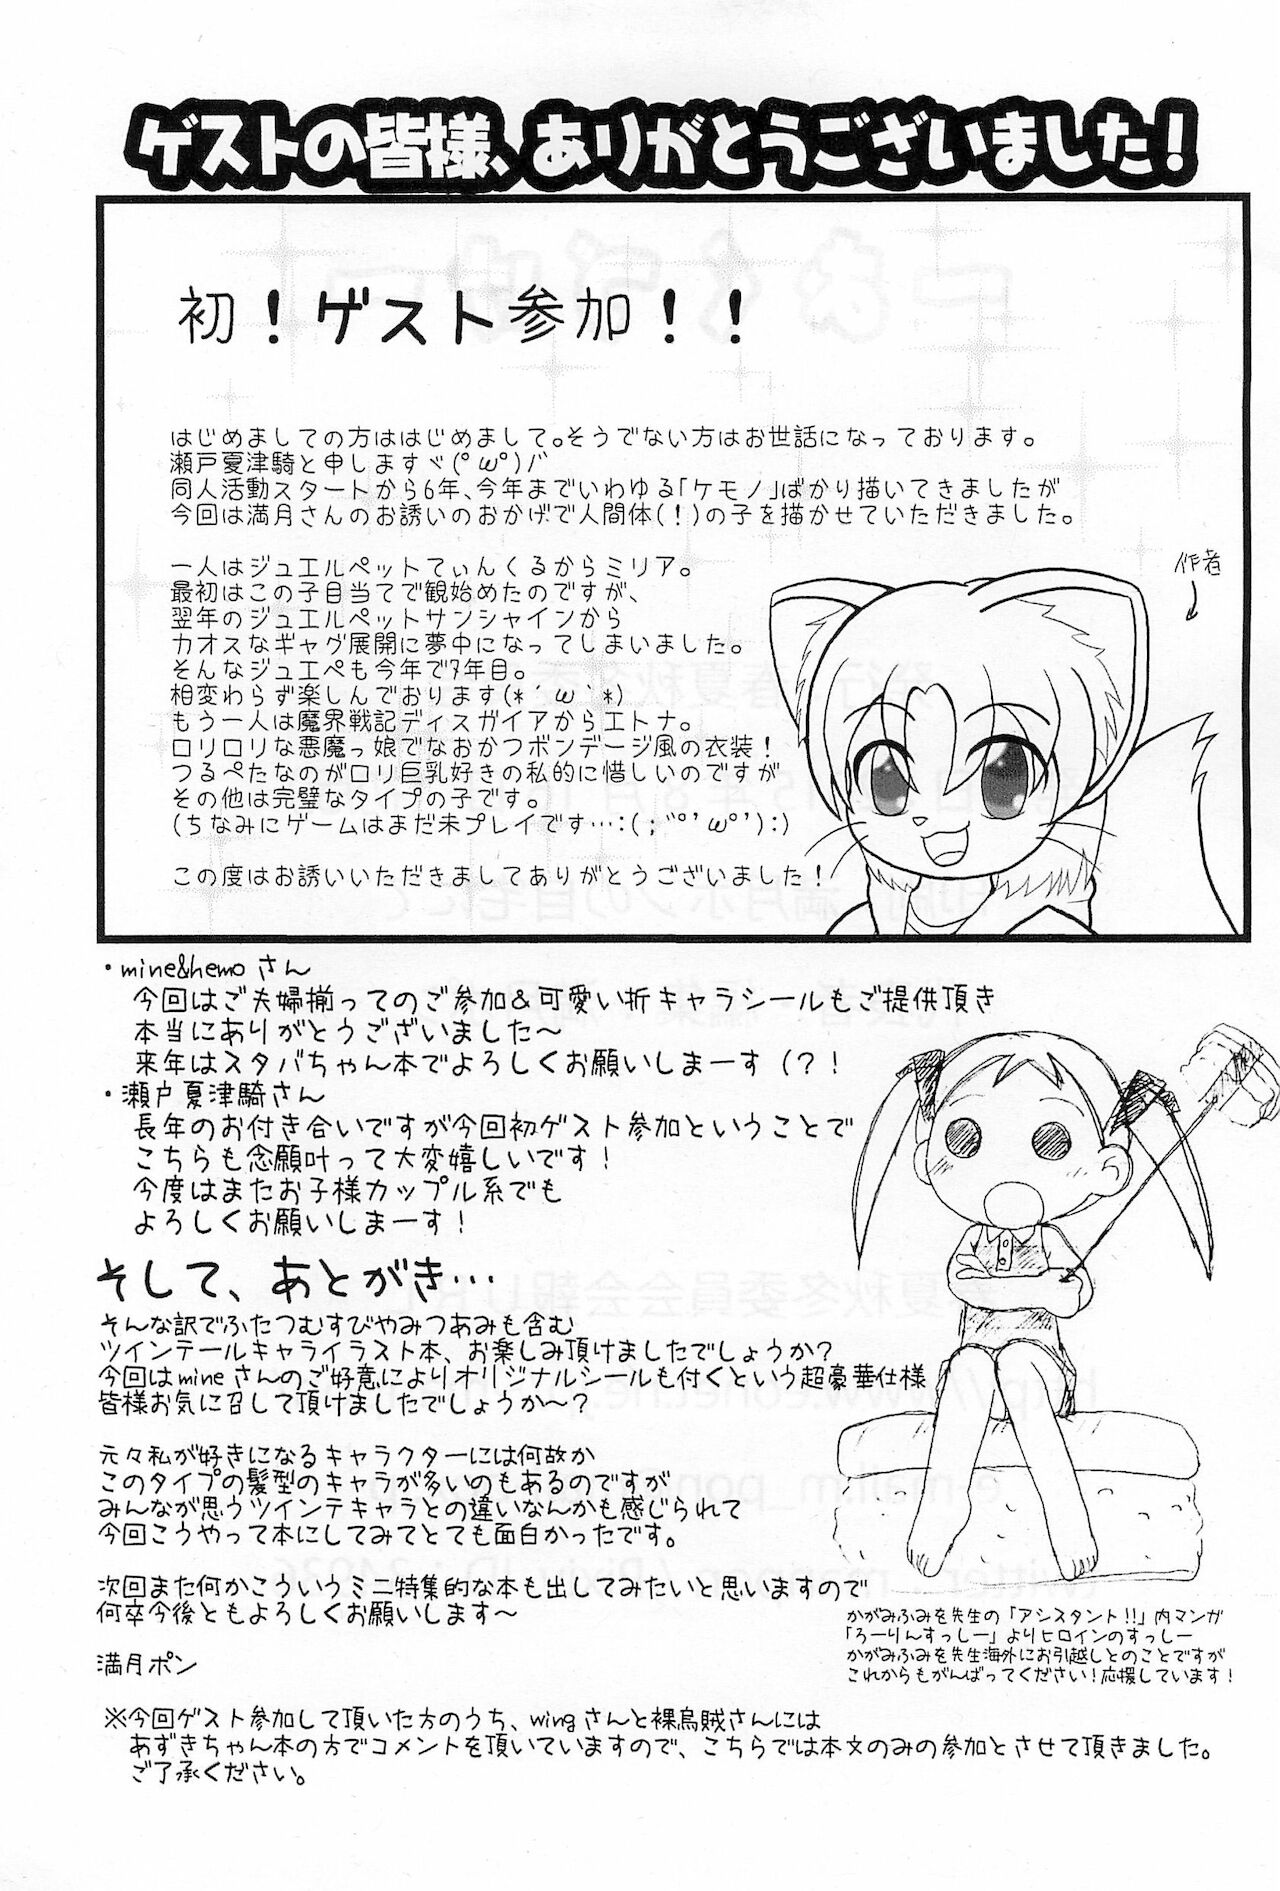 ゲストの皆様、ありがとうございました!
初!ゲスト参加!!
はじめましての方ははじめまして。そうでない方はお世話になっております。
瀬戸夏津騎と申しますヾ(°ω°)バ
同人活動スタートから6年、今年までいわゆる「ケモノ」ばかり描いてきましたが
今回は満月さんのお誘いのおかげで人間体(!)の子を描かせていただきました。
一人はジュエルペットてぃんくるからミリア。
最初はこの子目当てで観始めたのですが、
翌年のジュエルペットサンシャインから
カオスなギャグ展開に夢中になってしまいました。
そんなジュエペも今年で7年目。
相変わらず楽しんでおります(*´ω`*)
もう一人は魔界戦記ディスガイアからエトナ。
ロリロリな悪魔っ娘でなおかつボンデージ風の衣装!
つるぺたなのがロリ巨乳好きの私的に惜しいのですが
その他は完璧なタイプの子です。
(ちなみにゲームはまだ未プレイです…:(;゛°'ω°'):)
この度はお誘いいただきましてありがとうございました!
作者
・mine&hemoさん
今回はご夫婦揃ってのご参加&可愛い折キャラシールもご提供頂き
本当にありがとうございました〜
来年はスタバちゃん本でよろしくお願いしまーす(?!
・瀬戸夏津騎さん
長年のお付き合いですが今回初ゲスト参加ということで
こちらも念願叶って大変嬉しいです!
今度はまたお子様カップル系でも
よろしくお願いしまーす!
そして、あとがき…
そんな訳でふたつむすびやみつあみも含む
ツインテールキャライラスト本、お楽しみ頂けましたでしょうか?
今回はmineさんのご好意によりオリジナルシールも付くという超豪華仕様
皆様お気に召して頂けましたでしょうか〜?
元々私が好きになるキャラクターには何故か
このタイプの髪型のキャラが多いのもあるのですが
みんなが思うツインテキャラとの違いなんかも感じられて
今回こうやって本にしてみてとても面白かったです。
次回また何かこういうミニ特集的な本も出してみたいと思いますので
何卒今後ともよろしくお願いします〜
満月ポン
かがみふみを先生の「アシスタント!!」内マンガ
「ろーりんすっしー」よりヒロインのすっしー
かがみふみを先生海外にお引越しとのことですが
これからもがんばってください!応援しています!
※今回ゲスト参加して頂いた方のうち、wingさんと裸烏賊さんには
あずきちゃん本の方でコメントを頂いていますので、こちらでは本文のみの参加とさせて頂きました。
ご了承ください。